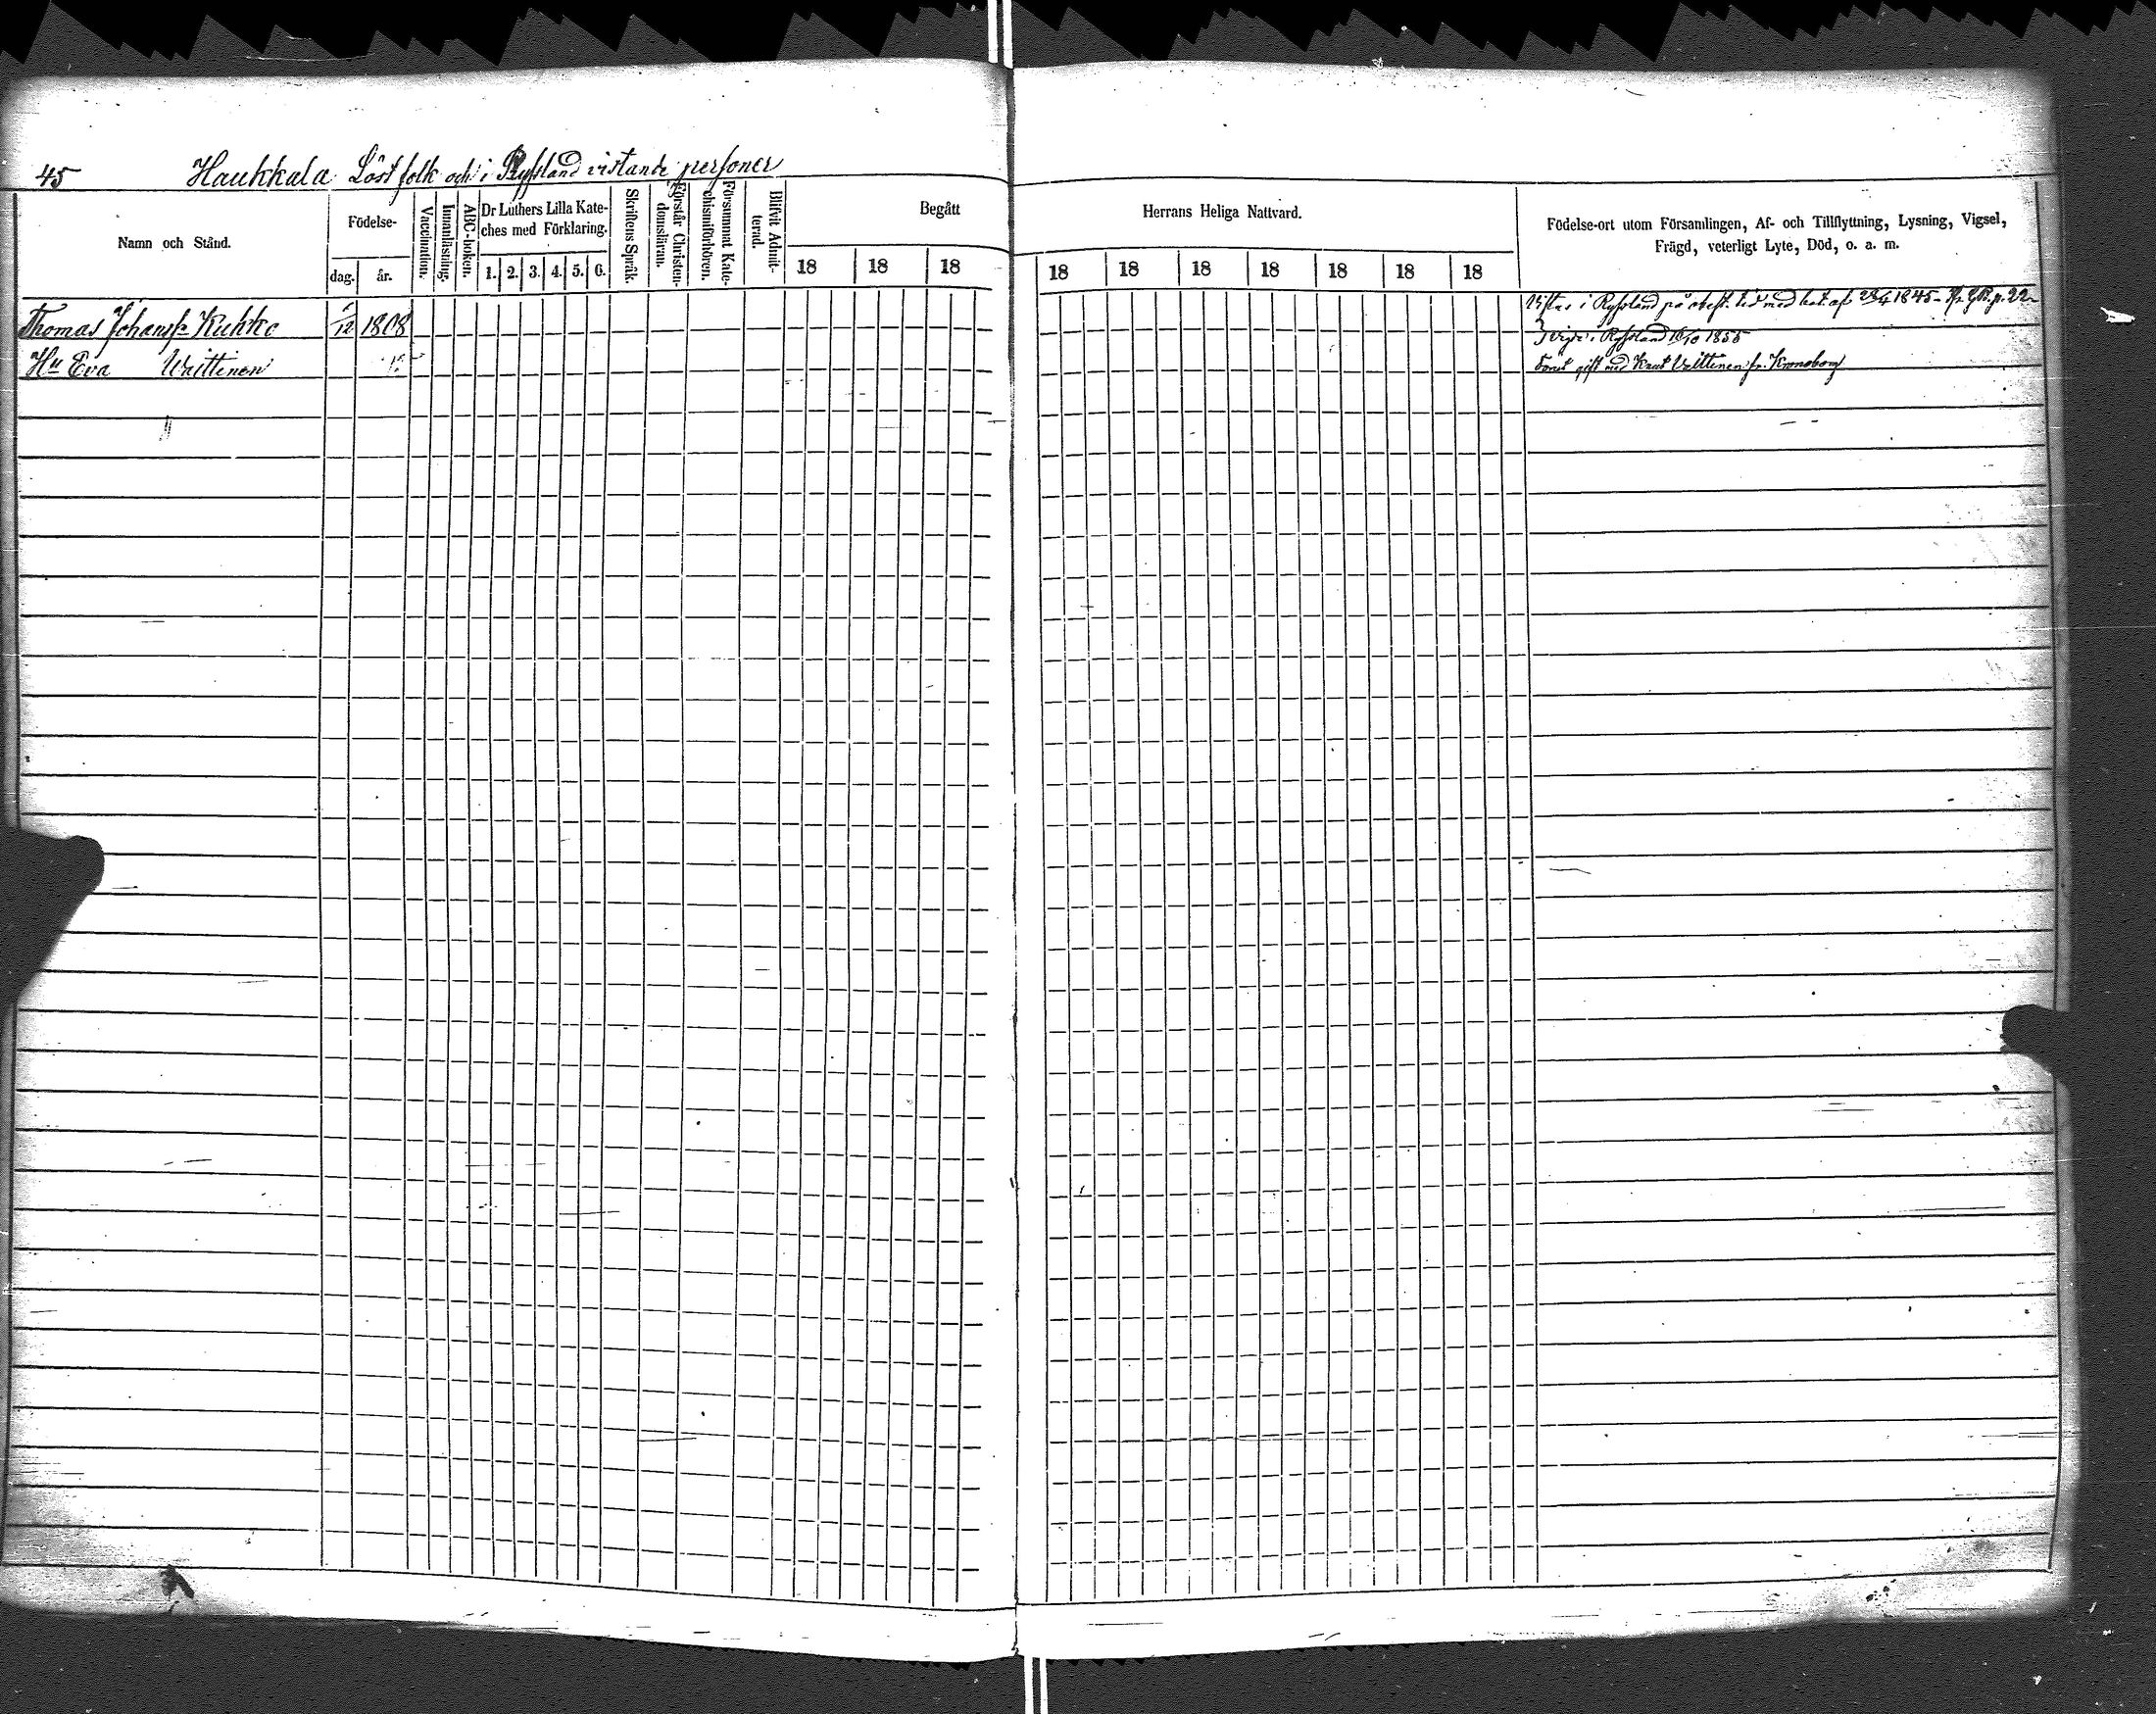 45 Haukkala Löst folk och i Ryssland vistande personer
Namn och Stånd.
Födelse-
dag.
år.
Vaccination.
Innanläsning.
ABC-boken.
Dr Luthers Lilla Kate-
ches med Förklaring.
1. 2. 3. 4. 5. 6.
Skriftens Språk.
Förstår Christen-
domsläran.
Försummat Kate-
chismiförhören.
Blifvit Admit-
terad.
Begått
18 18 18
Herrans Heliga Nattvard.
18 18 18 18 18 18 18
Födelse-ort utom Församlingen, Af- och Tillflyttning, Lysning, Vigsel,
Frägd, veterligt Lyte, Död, o. a. m.
Thomas Johanss. Kuhko /12 1808 Vistas i Ryssland på obest. tid med 1845 p. 22
Hu Eva Wäittinen
i Ryssland /10 1855
gift med Wäittinen fr. Kronoborg